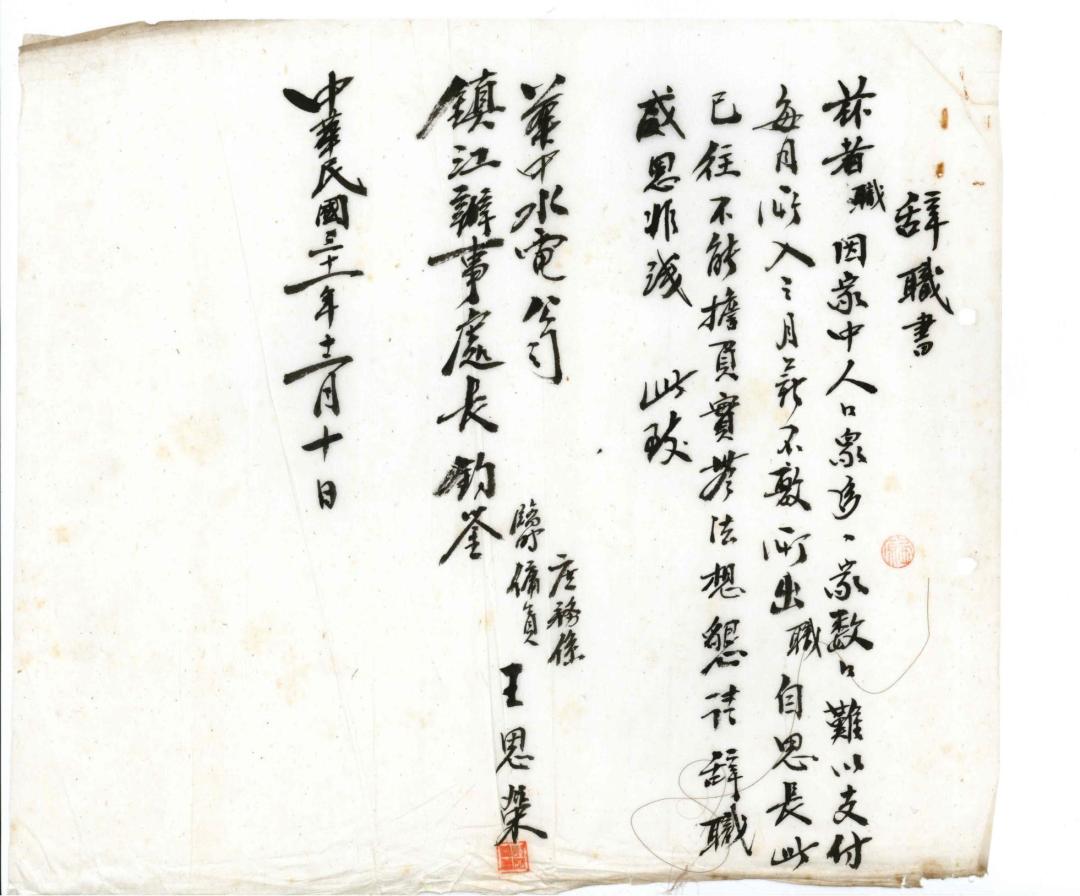 辞職書
茲者職因家中人口衆多、家数口難以支付
每月所入之月薪不敷所出職自思長此
已往不能擔負實無法想懇请辞職
感恩非浅　此致
華中水電公司
鎮江辦事處長鈞鉴
庶務係
臨時傭員　王恩榮
中華民國三十一年十二月十日